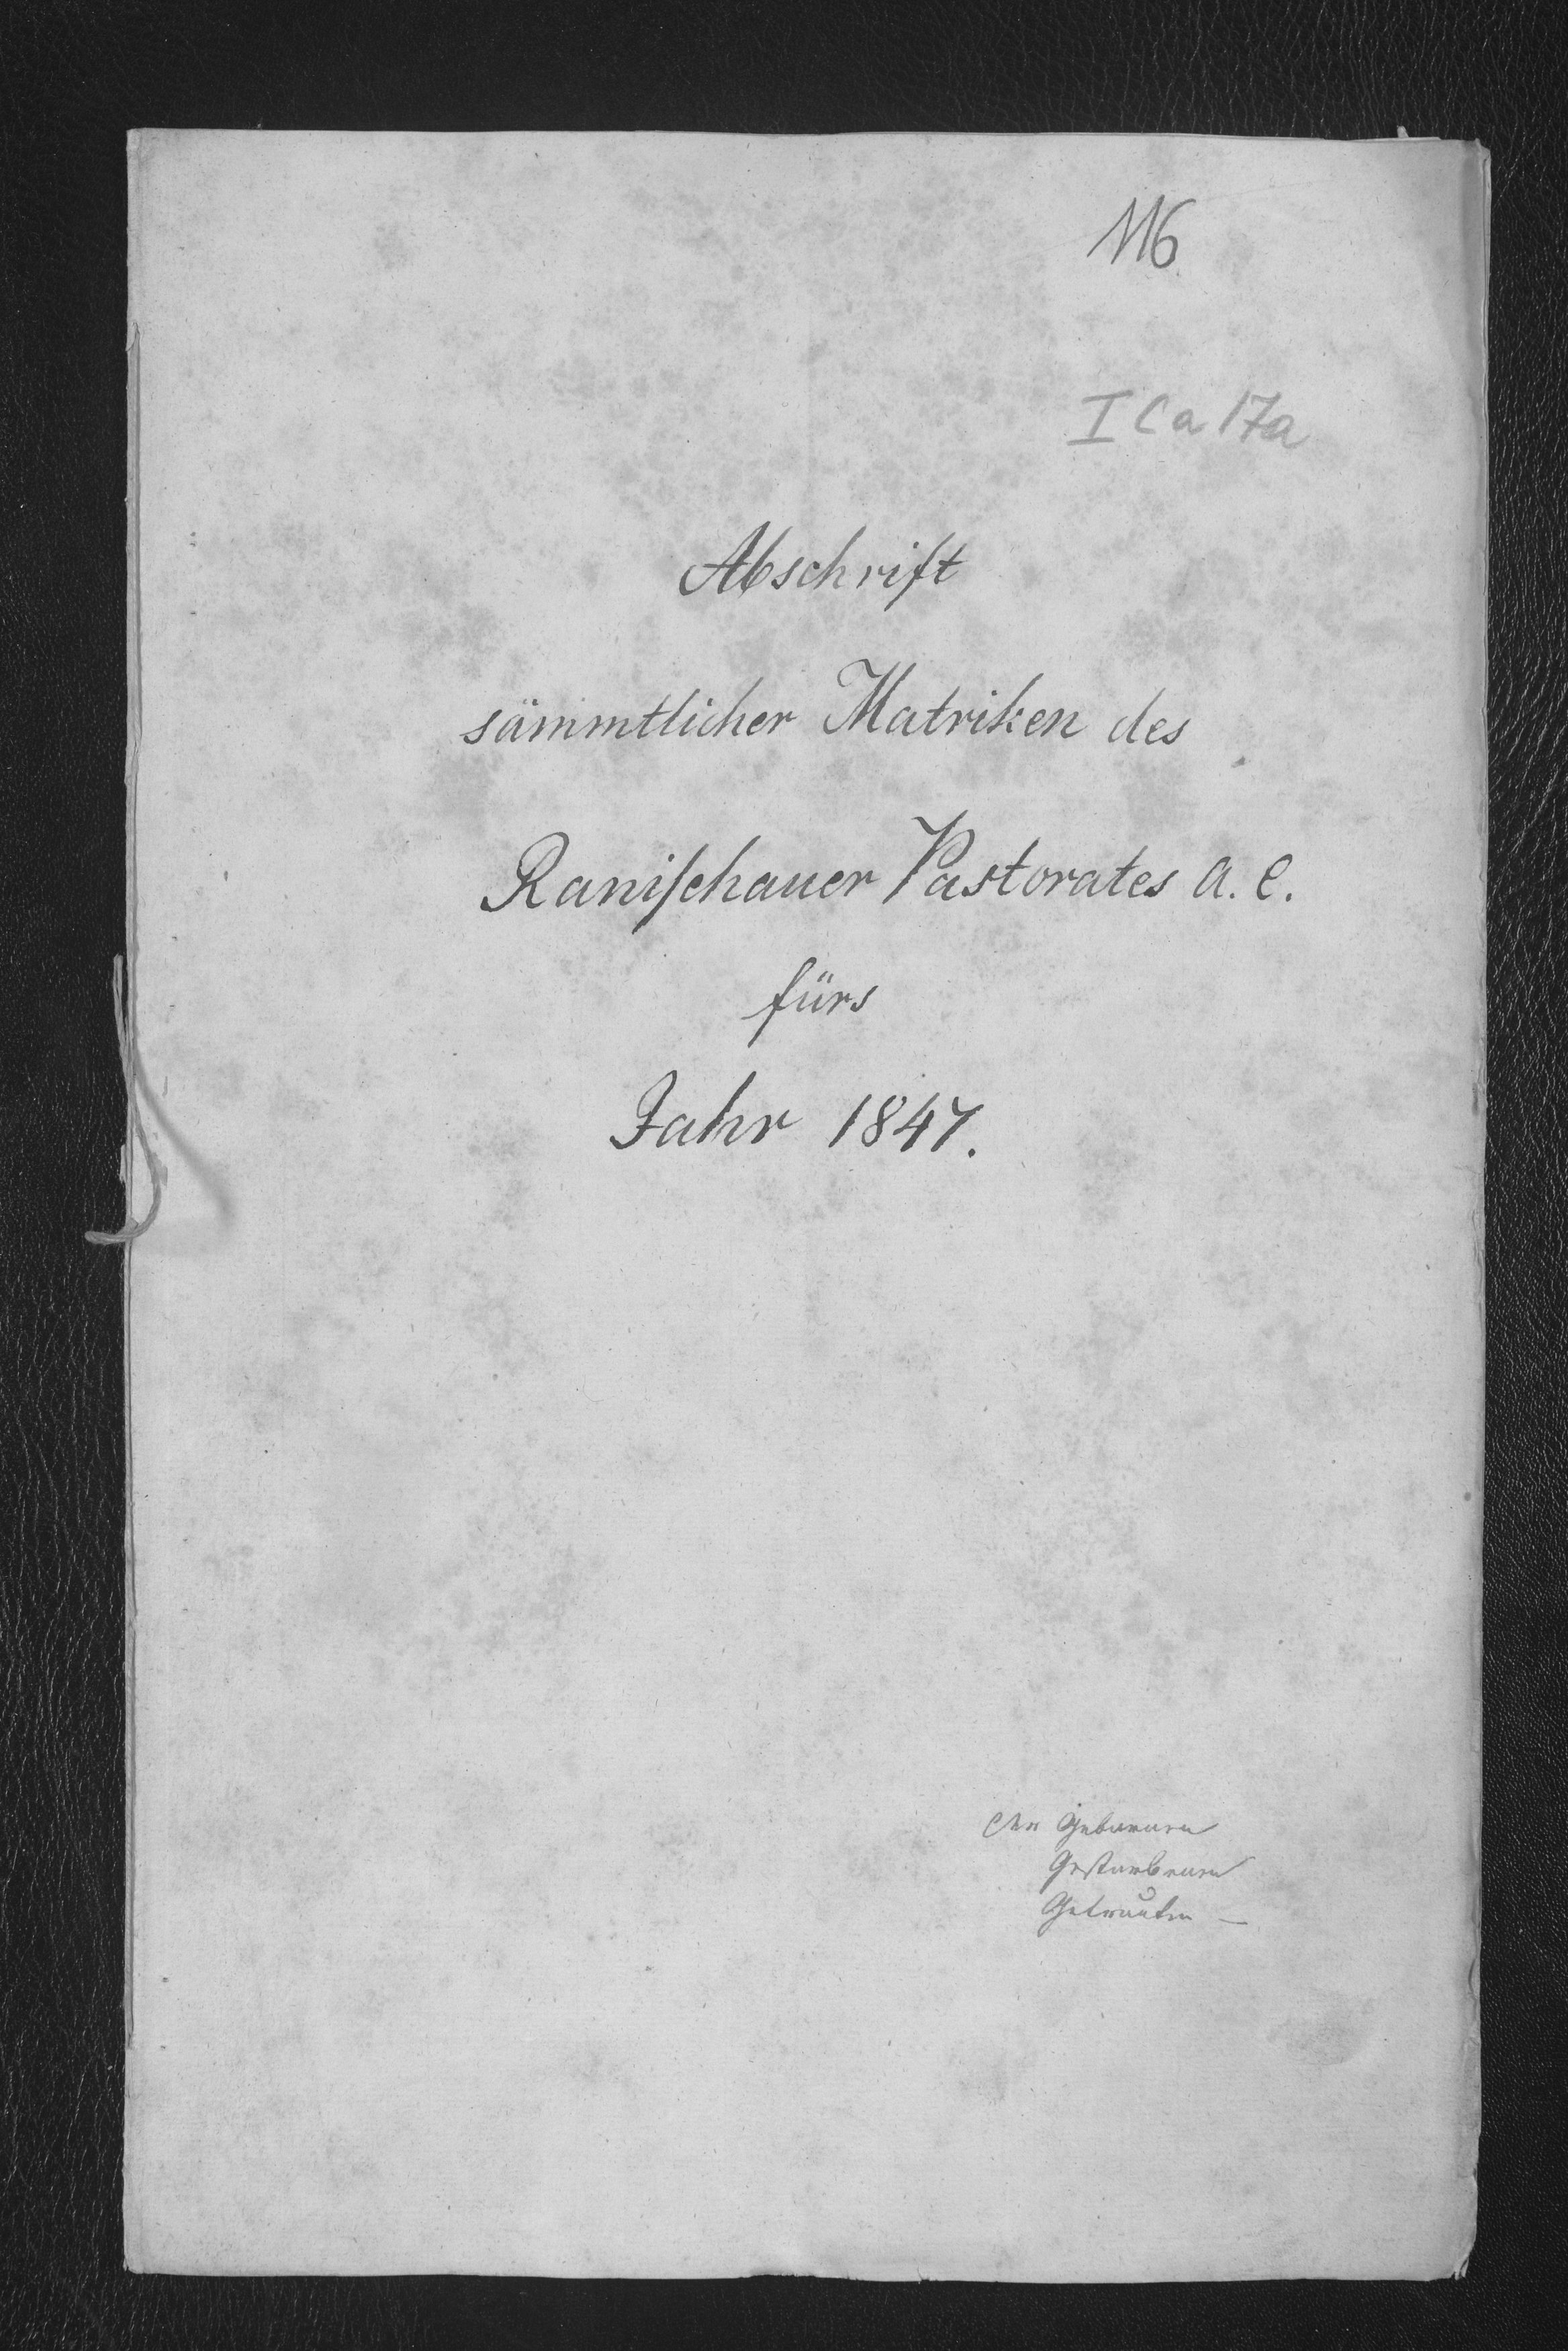 116
I C a 17a
Abschrift
sämmtlicher Matriken des
Ranischauer Pastorates A. C.
fürs
Jahr 1847.
Geborenen
Gestorbenen
Getrauten —